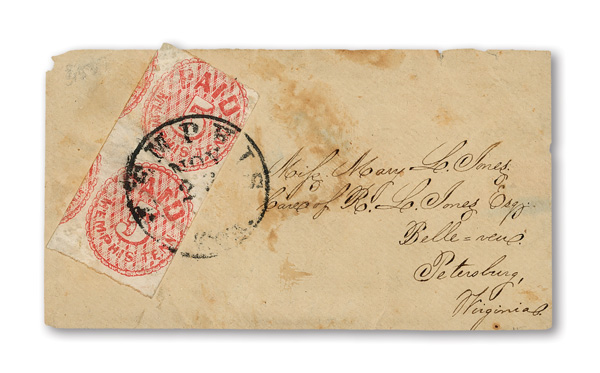 PAID
5
MEMPHIS TEN.
PAID
5
MEMPHIS TEN.
MEMPHIS
NOV
Miss Mary L. Jones.
Care of R. L. Jones Esq.
Belle=vue.
Petersburg,
Virginia.